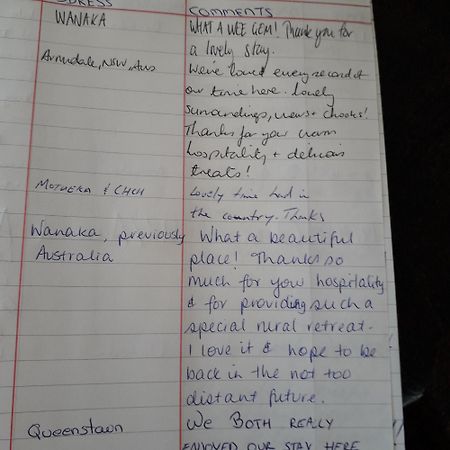 DRESS COMMENTS
WANAKA WHAT A WEE GEM! Thank you for
a lovely stay.
Armidale, NSW, Aus We've loved every second of
our time here. Lovely
surroundings, views + chooks!
Thanks for your warm
hospitality + delicious
treats!
MOTUEKA & CHCH Lovely time had in
the country. Thanks
Wanaka, previously What a beautiful
Australia place! Thanks so
much for your hospitality
& for providing such a
special rural retreat.
I love it & hope to be
back in the not too
distant future.
Queenstown WE BOTH REALLY
ENJOYED OUR STAY HERE